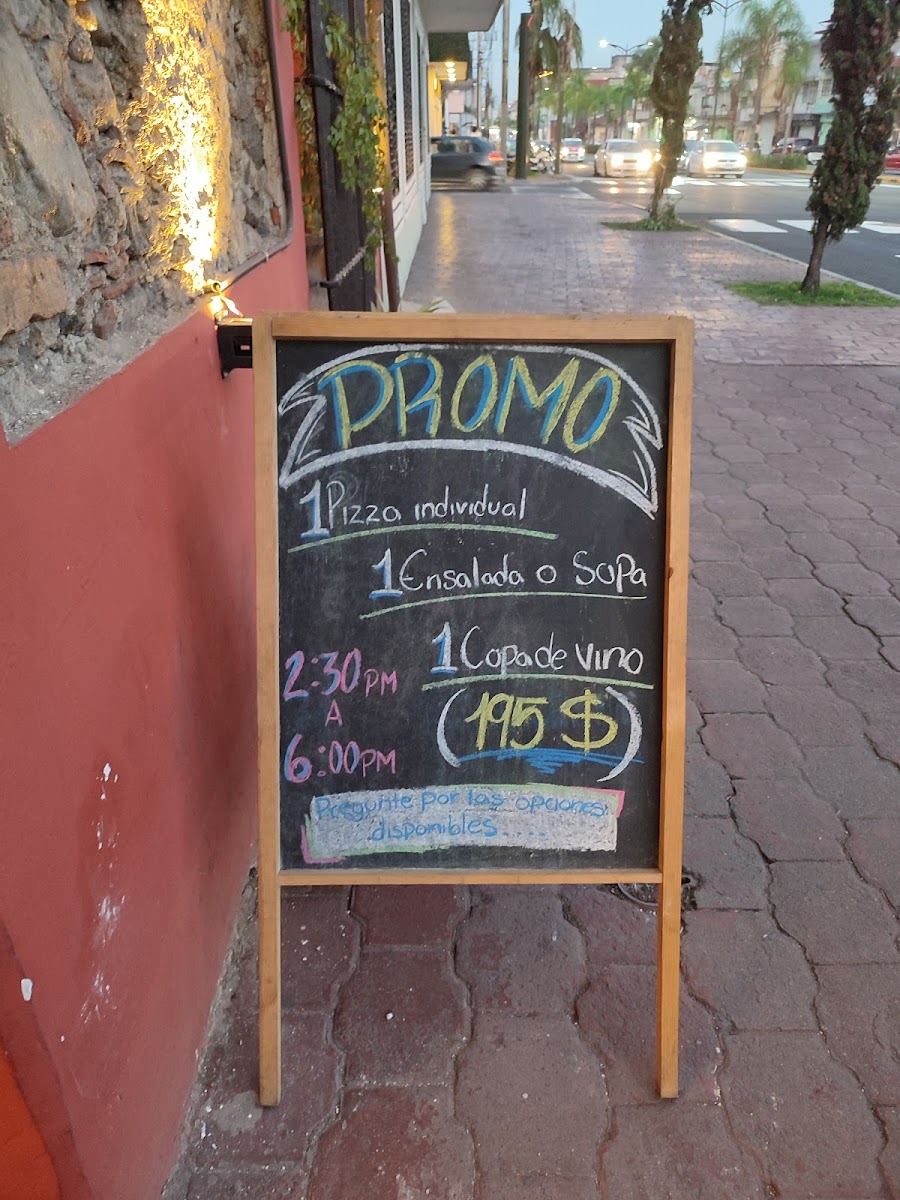 PROMO
1 Pizza individual
1 Ensalada o Sopa
1 Copa de vino
2:30 PM
A
6:00 PM
(195 $)
Pregunte por las opciones
disponibles....